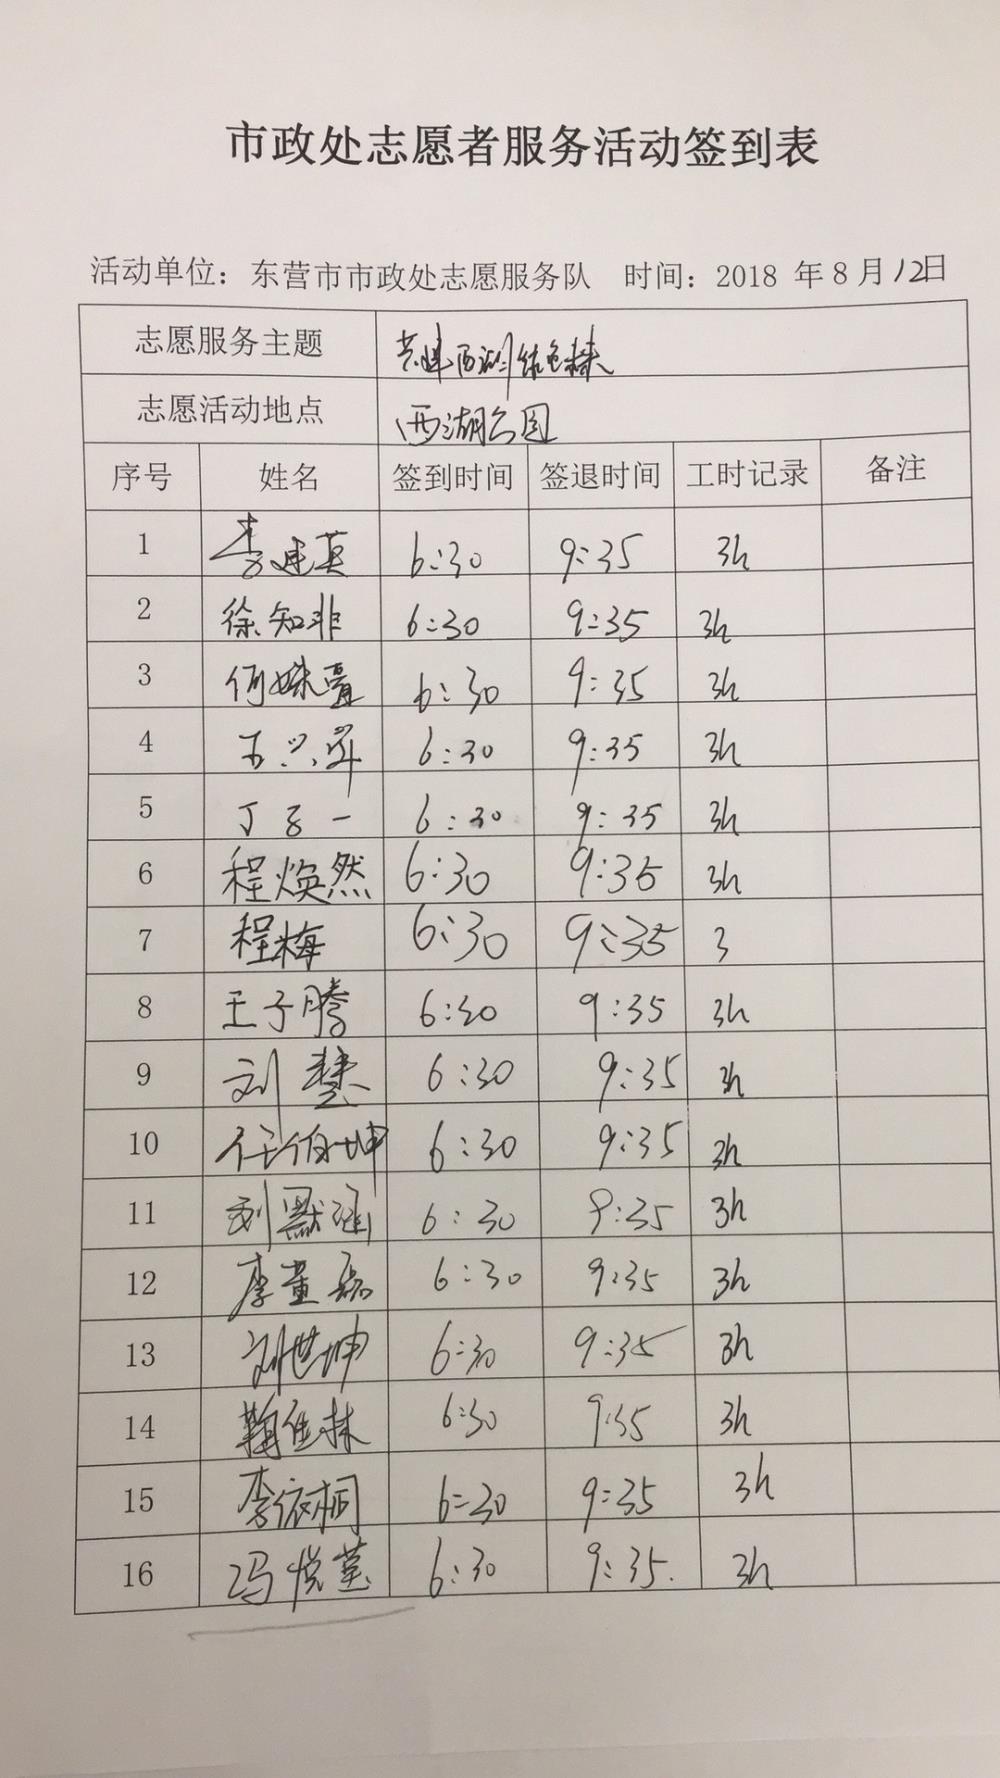 市政处志愿者服务活动签到表
活动单位：东营市市政处志愿服务队 时间：2018 年 8 月 12日
志愿服务主题 共建西湖 绿色
志愿活动地点 西湖公园
序号 姓名 签到时间 签退时间 工时记录 备注
1 李建英 6:30 9:35 3h
2 徐知非 6:30 9:35 3h
3 何姝 6:30 9:35 3h
4 6:30 9:35 3h
5 丁子一 6:30 9:35 3h
6 程焕然 6:30 9:35 3h
7 程梅 6:30 9:35 3
8 王子腾 6:30 9:35 3h
9 刘慧 6:30 9:35 3h
10 任伯坤 6:30 9:35 3h
11 刘默涵 6:30 9:35 3h
12 李童 6:30 9:35 3h
13 刘世坤 6:30 9:35 3h
14 鞠佳林 6:30 9:35 3h
15 李依桐 6:30 9:35 3h
16 冯悦 6:30 9:35 3h